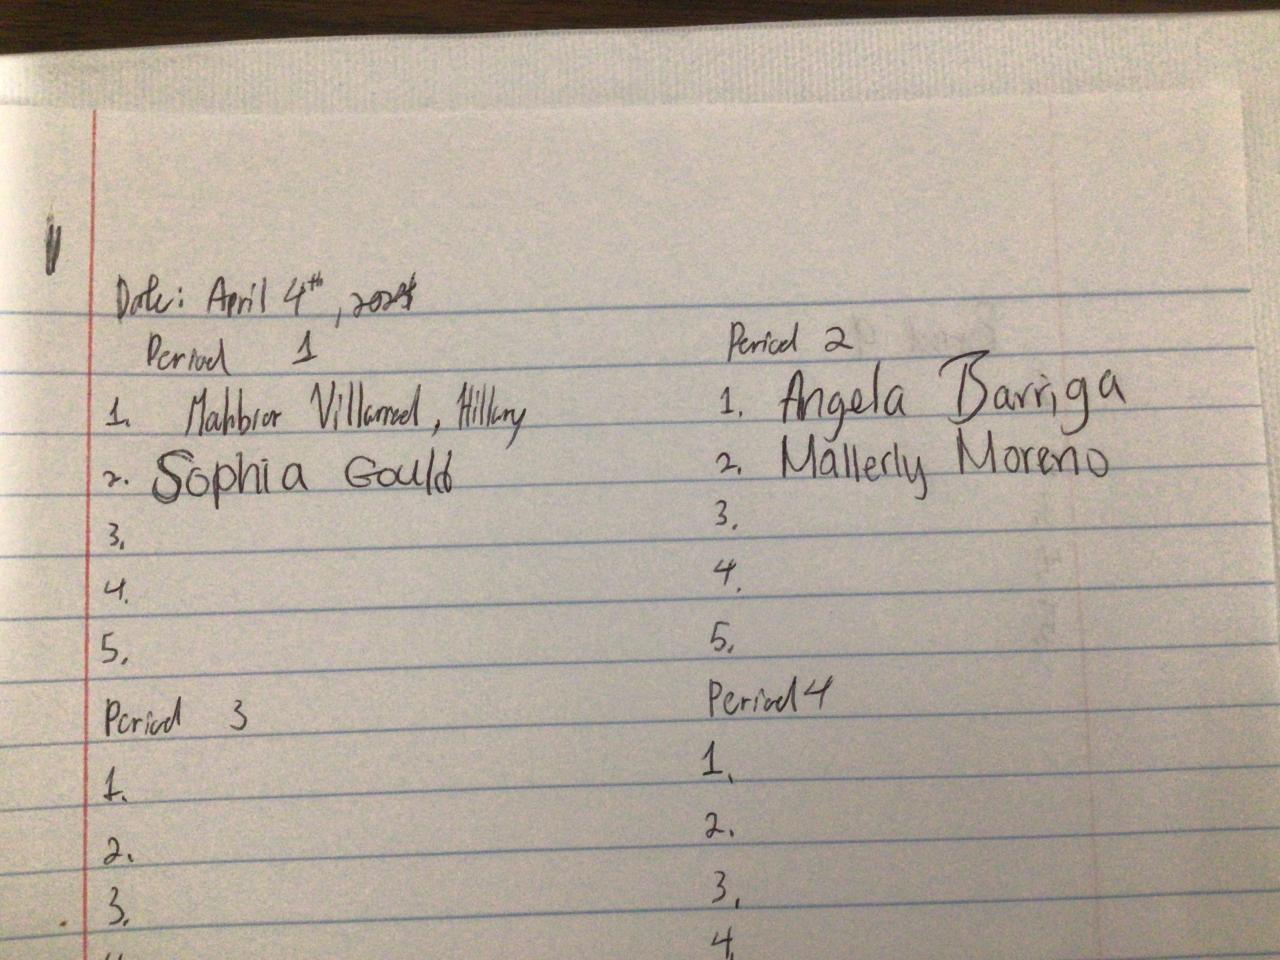 Date: April 4th, 2024
Period 1
1. Villarreal, Hillary
2. Sophia Gould
3.
4.
5.
Period 2
1. Angela Barriga
2. Mallerly Moreno
3.
4.
5.
Period 3
1.
2.
3.
Period 4
1.
2.
3.
4.